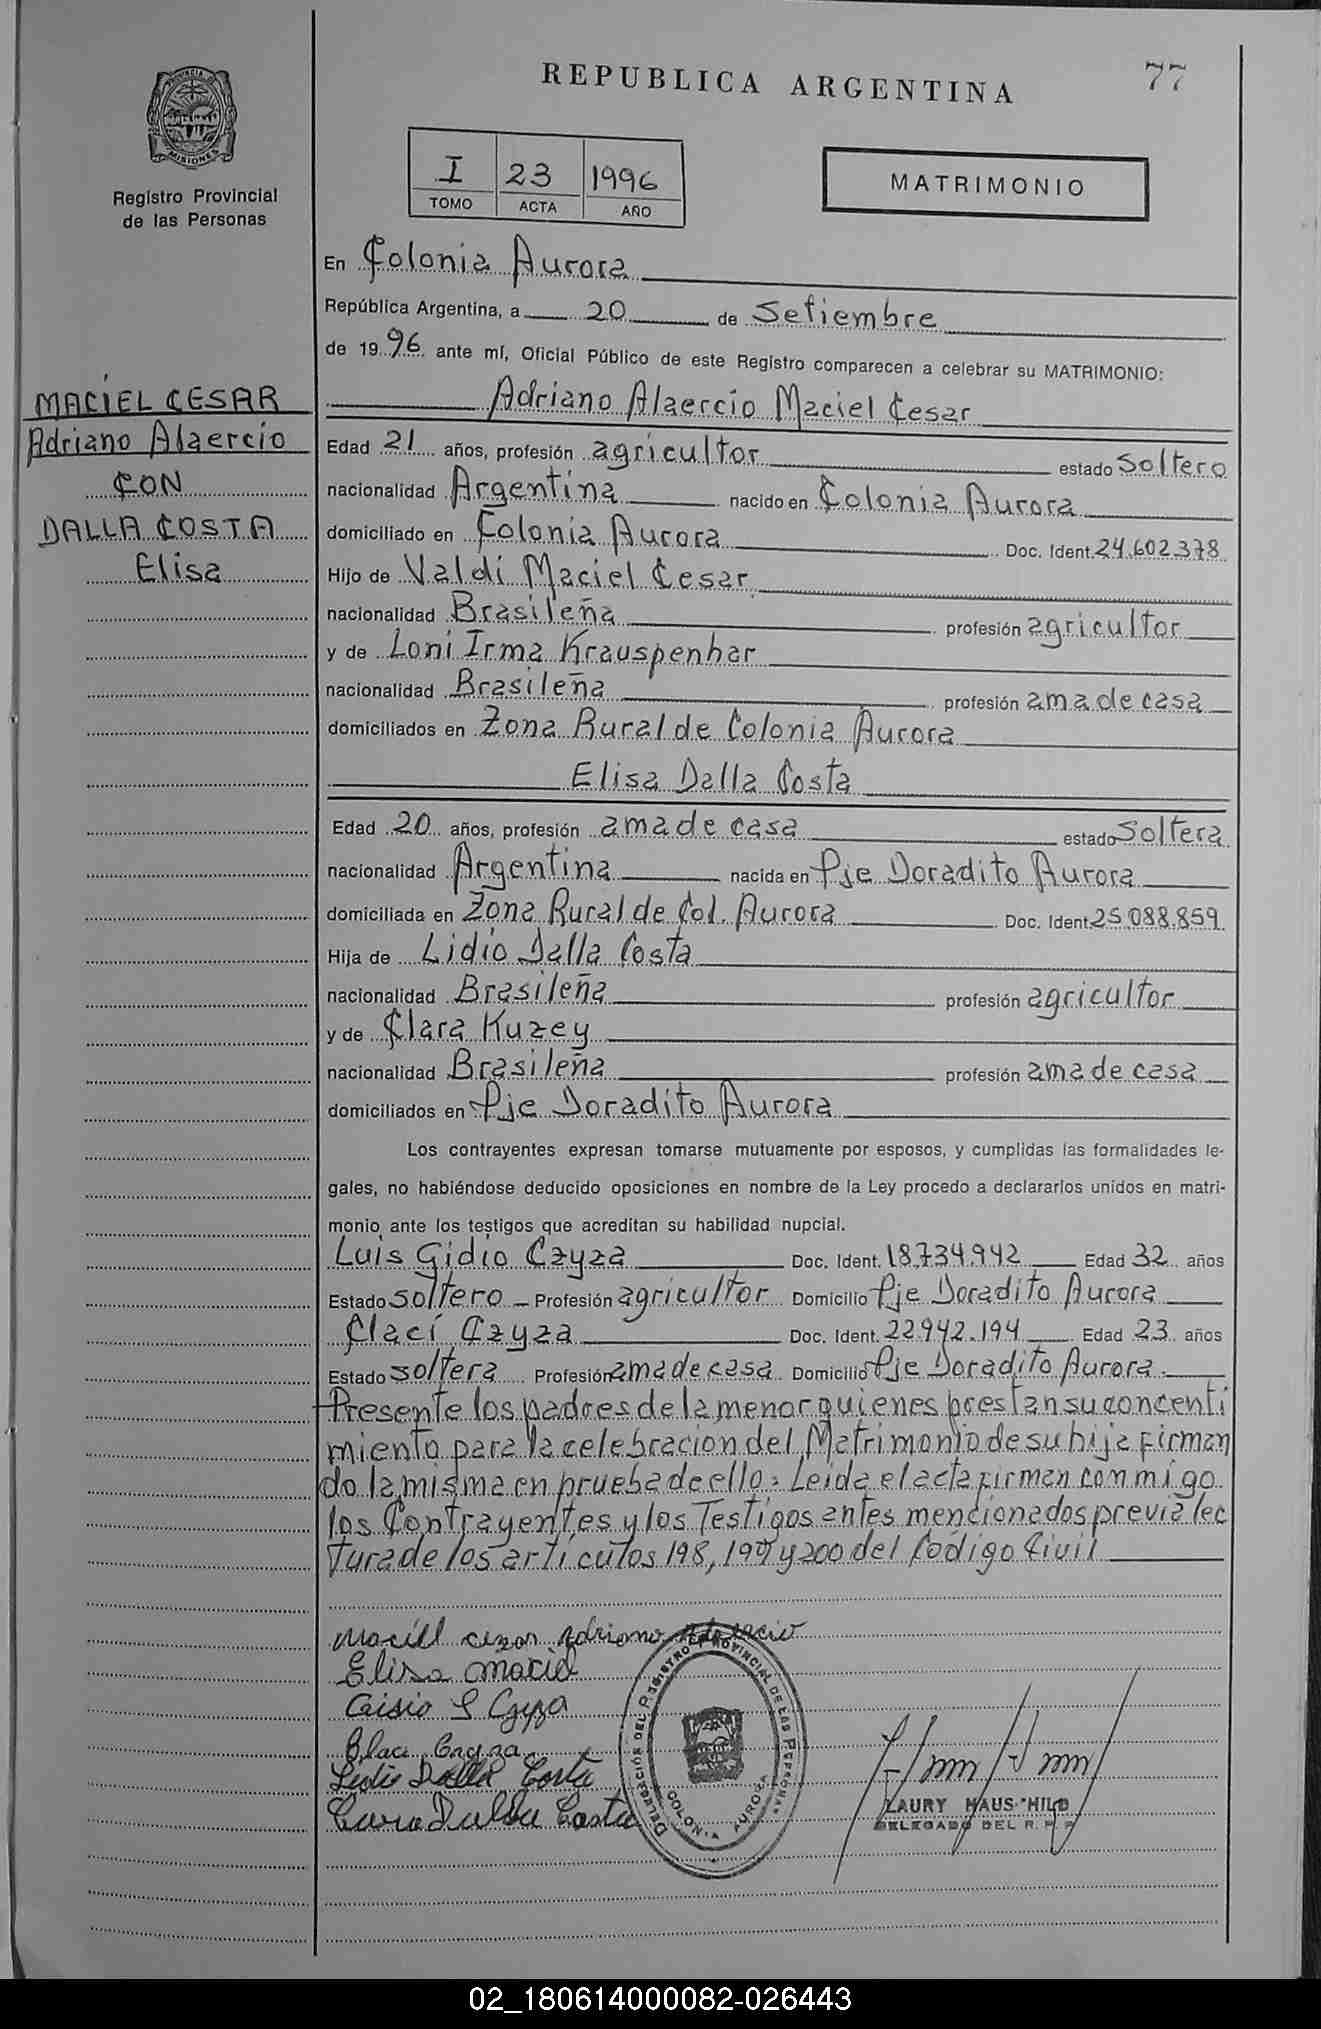 REPUBLICA ARGENTINA
77
PROVINCIA DE
MISIONES
Registro Provincial
de las Personas
I 23 1996
TOMO ACTA AÑO
MATRIMONIO
En Colonia Aurora
República Argentina, a 20 de Setiembre
de 1996 ante mí, Oficial Público de este Registro comparecen a celebrar su MATRIMONIO:
MACIEL CESAR
Adriano Alaercio
CON
DALLA COSTA
Elisa
Adriano Alaercio Maciel Cesar
Edad 21 años, profesión agricultor estado Soltero
nacionalidad Argentina nacido en Colonia Aurora
domiciliado en Colonia Aurora Doc. Ident. 24.602.378
Hijo de Valdi Maciel Cesar
nacionalidad Brasileña profesión agricultor
y de Loni Irma Krauspenhar
nacionalidad Brasileña profesión ama de casa
domiciliados en Zona Rural de Colonia Aurora
Elisa Dalla Costa
Edad 20 años, profesión ama de casa estado Soltera
nacionalidad Argentina nacida en Pje Doradito Aurora
domiciliada en Zona Rural de Col. Aurora Doc. Ident. 25.088.859
Hija de Lidio Dalla Costa
nacionalidad Brasileña profesión agricultor
y de Clara Kuzey
nacionalidad Brasileña profesión ama de casa
domiciliados en Pje Doradito Aurora
Los contrayentes expresan tomarse mutuamente por esposos, y cumplidas las formalidades le-
gales, no habiéndose deducido oposiciones en nombre de la Ley procedo a declararlos unidos en matri-
monio ante los testigos que acreditan su habilidad nupcial.
Luis Gidio Czyza Doc. Ident. 18.734.942 Edad 32 años
Estado soltero Profesión agricultor Domicilio Pje Doradito Aurora
Clací Czyza Doc. Ident. 22.942.194 Edad 23 años
Estado soltera Profesión ama de casa Domicilio Pje Doradito Aurora
Presente los padres de la menor quienes prestan su concenti
miento para la celebracion del Matrimonio de su hija firman
do la misma en prueba de ello: Leida el acta firman conmigo
los Contrayentes y los Testigos antes mencionados previa lec
tura de los artículos 198, 199 y 200 del Código Civil
Maciel cezar Adriano
Elisa Maciel
Czyza
Claci Czyza
Lidio Dalla Costa
Clara Dalla Costa
DELEGACIÓN DEL REGISTRO PROVINCIAL DE LAS PERSONAS
COLONIA AURORA
LAURY HAUS-HILD
DELEGADO DEL R. P. P.
02_180614000082-026443